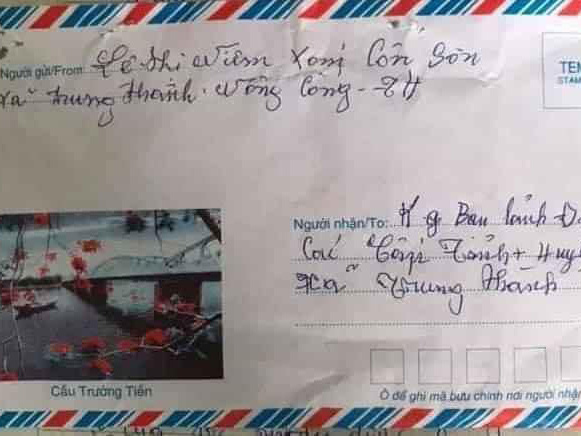 Người gửi/From: Lê Thị Niêm Xóm Côn Sơn
xã Trung Thành. Nông Cống - TH
TEM
STAM
Người nhận/To: K g Ban lãnh Đ
Các Cấp Tỉnh + Huyệ
Xã Trung Thành
Cầu Trường Tiền
Ô để ghi mã bưu chính nơi người nhận